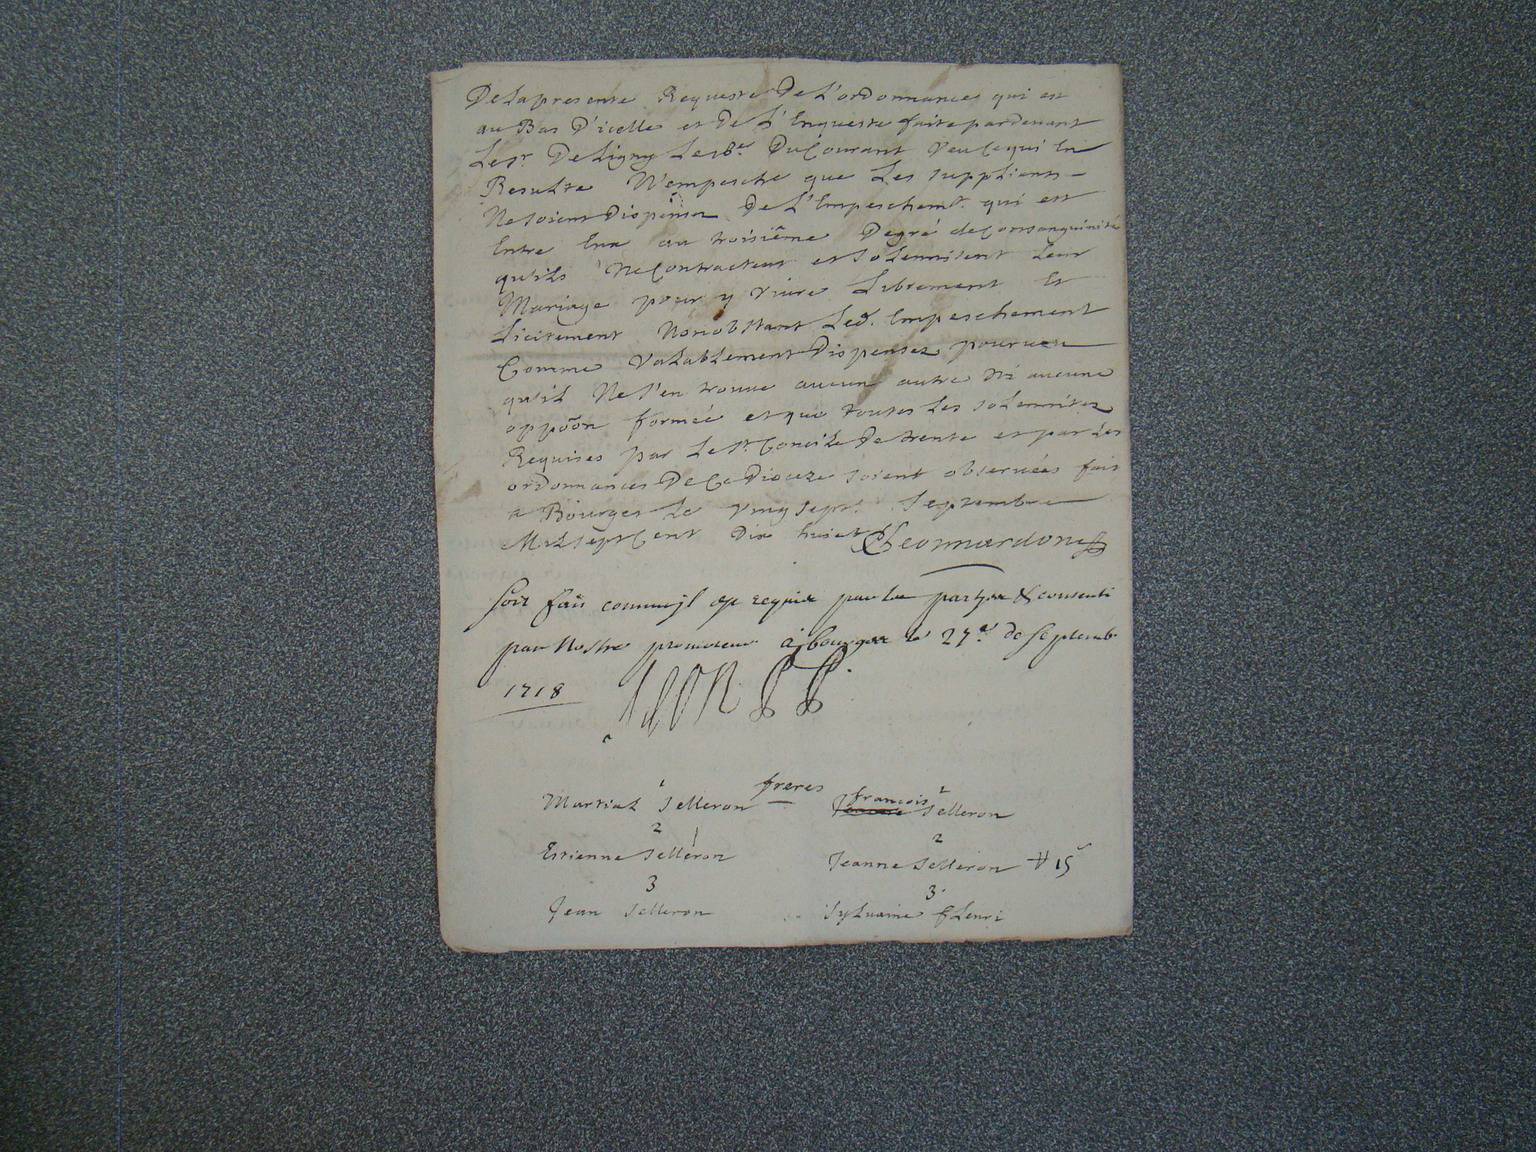 De la presente Requeste De L'ordonnance qui est
au Bas D'icelle et De L'Enqueste faite pardevant
Le Sr. De Ligny Le 18e Du Courant Veu Ce qui En
Resulte N'empesche que Les supplians
Ne soient Dispensez De L'Empeschemt. qui est
Entre Eux au troisiême Degré de Consanguinité
qu'ils Ne Contractent et solennisent Leur
Mariage pour y Vivre Librement Et
Licitement Nonobstant Led. Empeschement
Comme Valablement Dispensez pourveu
qu'il Ne s'en trouve aucun autre Ni aucune
oppoôn formée et que toutes Les solennitez
Requises par Le St. Concile De trente et par Les
ordonnances De Ce Dioceze soient observées fait
a Bourges Le Vingsept. Septembre
Mil sept Cent Dix huict
soit fait comme il est requis par les partyes & consenti
par nostre promoteur a bourges le 27e de septemb.
1718
freres
Martial 1 Selleron francois 1 Selleron
2 2
Estienne Selleron Jeanne Selleron # 15
3 3
Jean Selleron Sylvaine fleuri